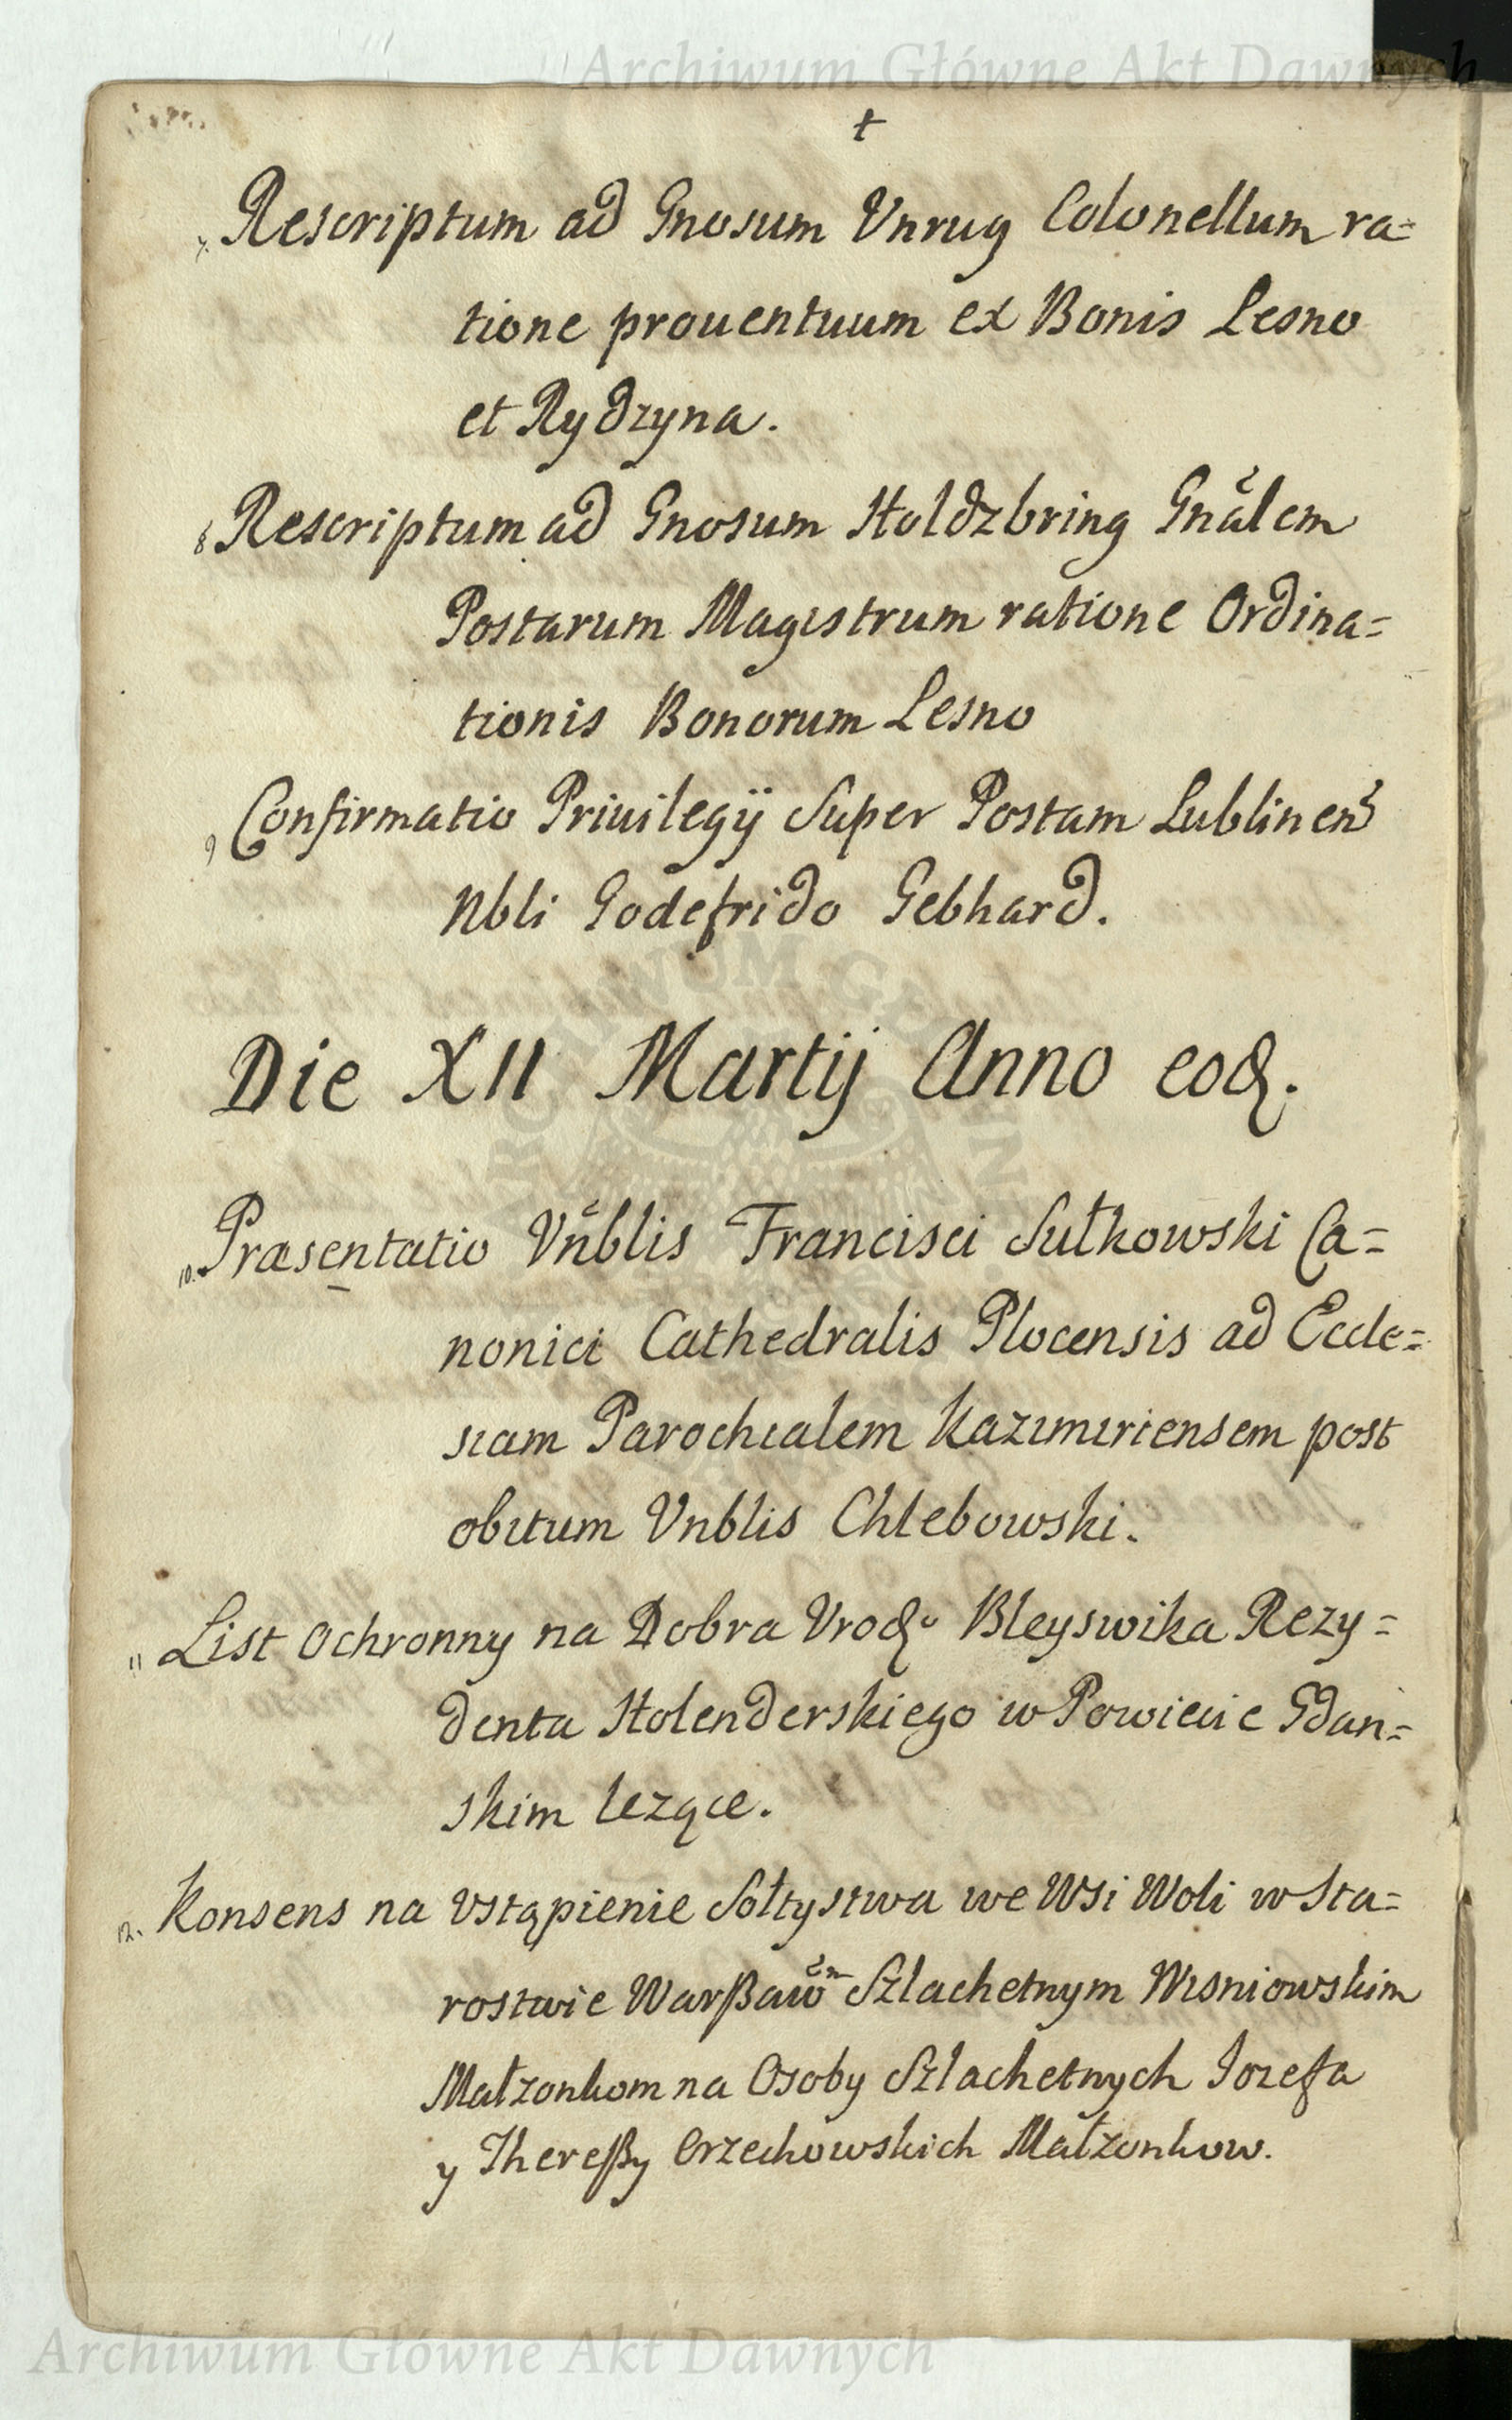 Archiwum Główne Akt Dawnych
†
Rescriptum ad Gnosum Vnrug Colonellum ra=
tione prouentuum ex Bonis Lesno
et Rydzyna.
8 Rescriptum ad Gnosum Holdzbring Gnalem
Postarum Magistrum ratione Ordina=
tionis Bonorum Lesno
9 Confirmatio Priuilegij Super Postam Lublinen
Nbli Godefrido Gebhard.
Die XII Martij Anno eod.
10. Præsentatio Vnblis Francisci Sułkowski Ca=
nonici Cathedralis Plocensis ad Eccle=
siam Parochialem Kazimiriensem post
obitum Vnblis Chlebowski.
11 List Ochronny na Dobra Vrodo Bleyswika Rezy=
denta Holenderskiego w Powiecie Gdan=
skim lezące.
12. Konsens na Vstąpienie Sołtystwa we Wsi Woli w Sta=
rostwie Warßaw Szlachetnym Wisniowskim
Małzonkom na Osoby Szlachetnych Jozefa
y Thereßy Orzechowskich Małzonkow.
Archiwum Główne Akt Dawnych